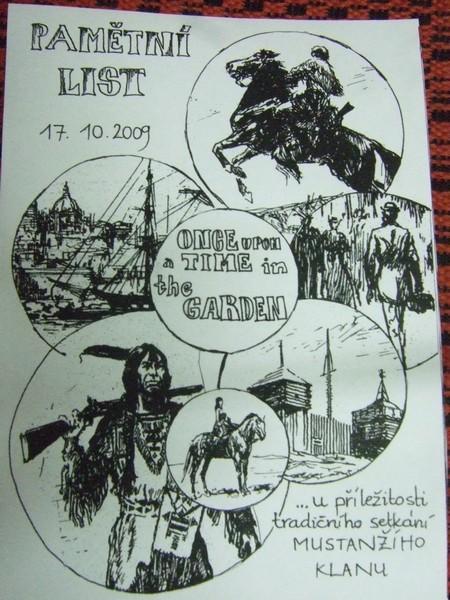 PAMĚTNÍ
LIST
17. 10. 2009
ONCE UPON
a TIME in
the
GARDEN
...u příležitosti
tradičního setkání
MUSTANŽÍHO
KLANU